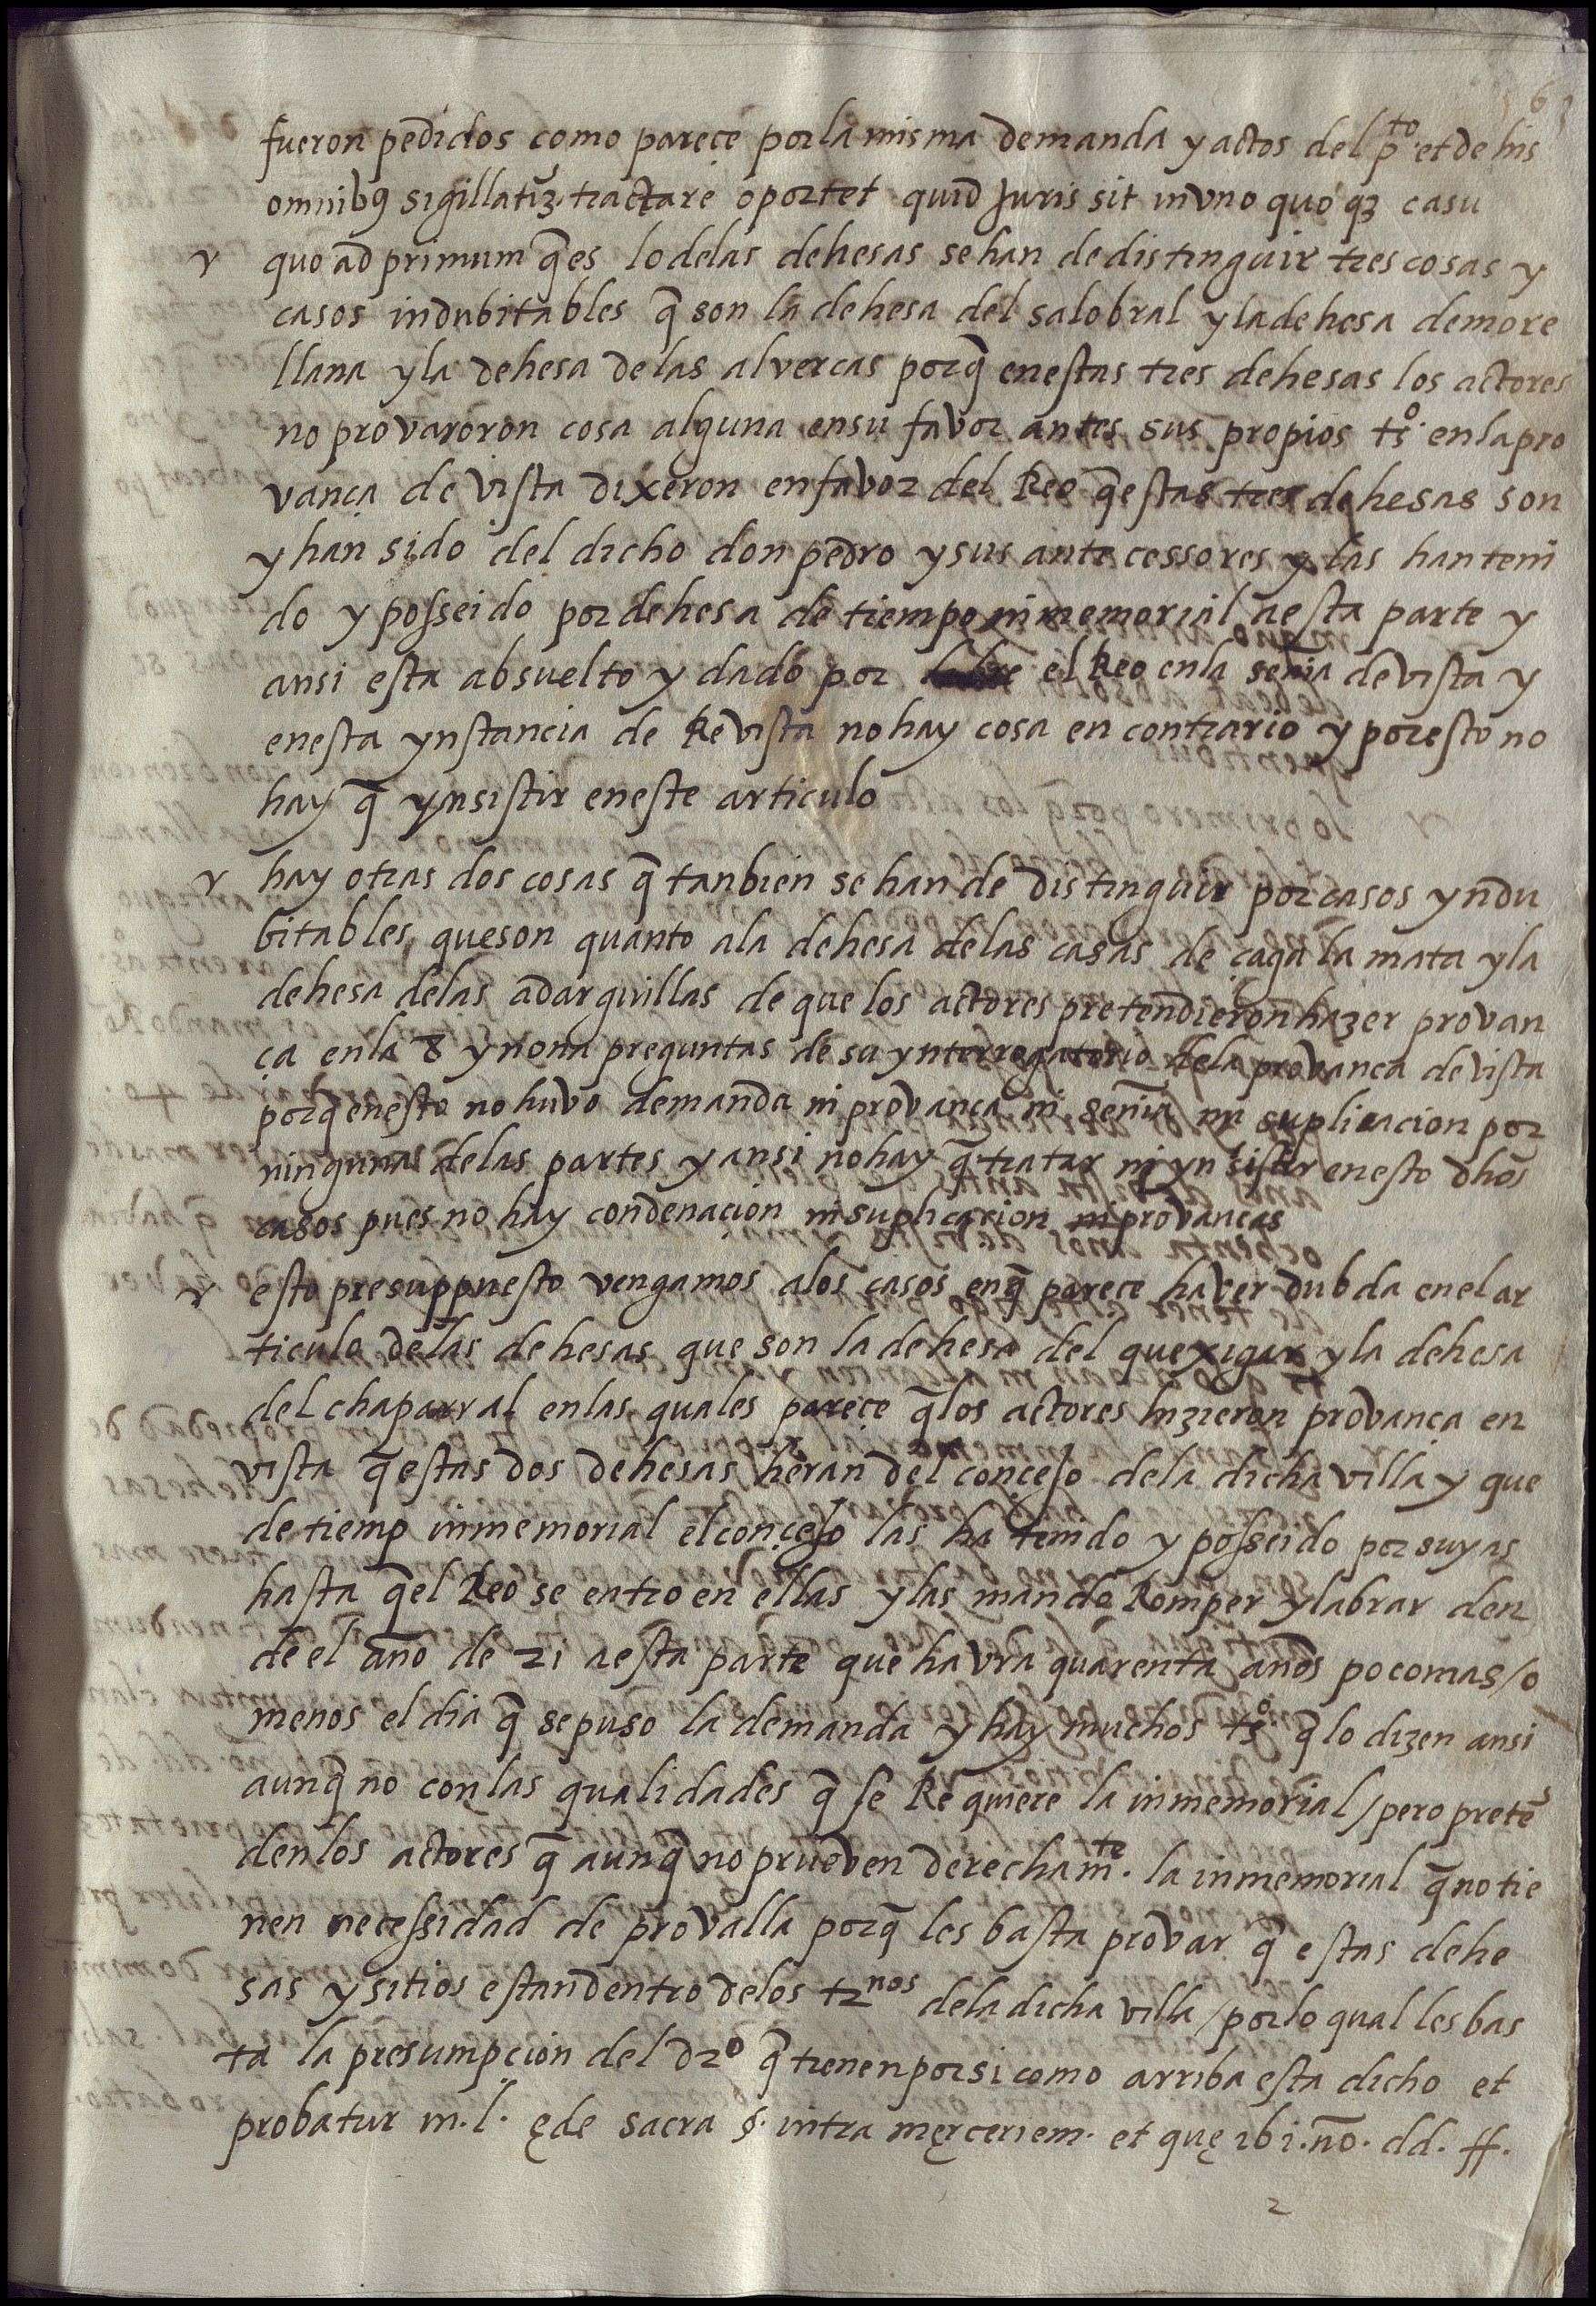 fueron pedidos como pareçe por la misma demanda y actos del p̄to. et de his
omnibꝰ sigillatiꝫ. tractare oportet quid Juris sit in uno quo qꝫ casu
quo ad primum q̄ es lo de las dehesas se han de distinguir tres cosas y
casos indubitables q̄ son la dehesa del salobral y la dehesa de more
llana y la dehesa de las alvercas porq̄ en estas tres dehesas los actores
no provaroron cosa alguna en su favor antes sus propios tsº. en la pro
vança de vista dixeron en favor del Reo q̄ estas tres dehesas son
y han sido del dicho don pedro y sus antecessores y las han teni
do y posseido por dehesa de tiempo inmemorial a esta parte y
ansi esta absuelto y dado por libre el Reo en la senīa de vista y
en esta ynstancia de Revista no hay cosa en contrario y por esto no
hay q̄ ynsistir en este articulo
hay otras dos cosas q̄ tanbien se han de distinguir por casos yndu
bitables, que son quanto a la dehesa de las casas de caga la mata y la
dehesa de las adarguillas de que los actores pretendieron hazer provan
ça en la 8 y nona preguntas de su ynterrogatorio de la provança de vista
porq̄ en esto no huvo demanda ni provança ni senīa ni suplicacion por
ningunas de las partes y ansi no hay q̄ tratar ni ynsistir en esto dhos̄
casos pues no hay condenaçion ni suplicacion ni provanças
esto presuppuesto vengamos a los casos en q̄ parece haver dubda en el ar
ticulo de las dehesas que son la dehesa del quexigar y la dehesa
del chaparral en las quales pareçe q̄ los actores hizieron provança en
vista q̄ estas dos dehesas heran del conçejo de la dicha villa y que
de tiemp inmemorial el conçejo las ha tenido y posseido por suyas
hasta q̄ el Reo se entro en ellas y las mando Romper y labrar den
de el año de 21 a esta parte que havra quarenta años poco mas / o
menos el dia q̄ se puso la demanda y hay muchos tsº q̄ lo dizen ansi
aunq̄ no con las qualidades q̄ se Requiere la inmemorial / pero pretē
den los actores q̄ aunq̄ no prueven derechamte. la inmemorial q̄ no tie
nen necessidad de provalla porq̄ les basta provar q̄ estas dehe
sas y sitios estan dentro de los trnos de la dicha villa / por lo qual les bas
ta la presumpcion del drº q̄ tienen por si como arriba esta dicho et
probatur in. l. ęde sacra §. intra męceriem. et quę ibi. nō. dd. ff.
2